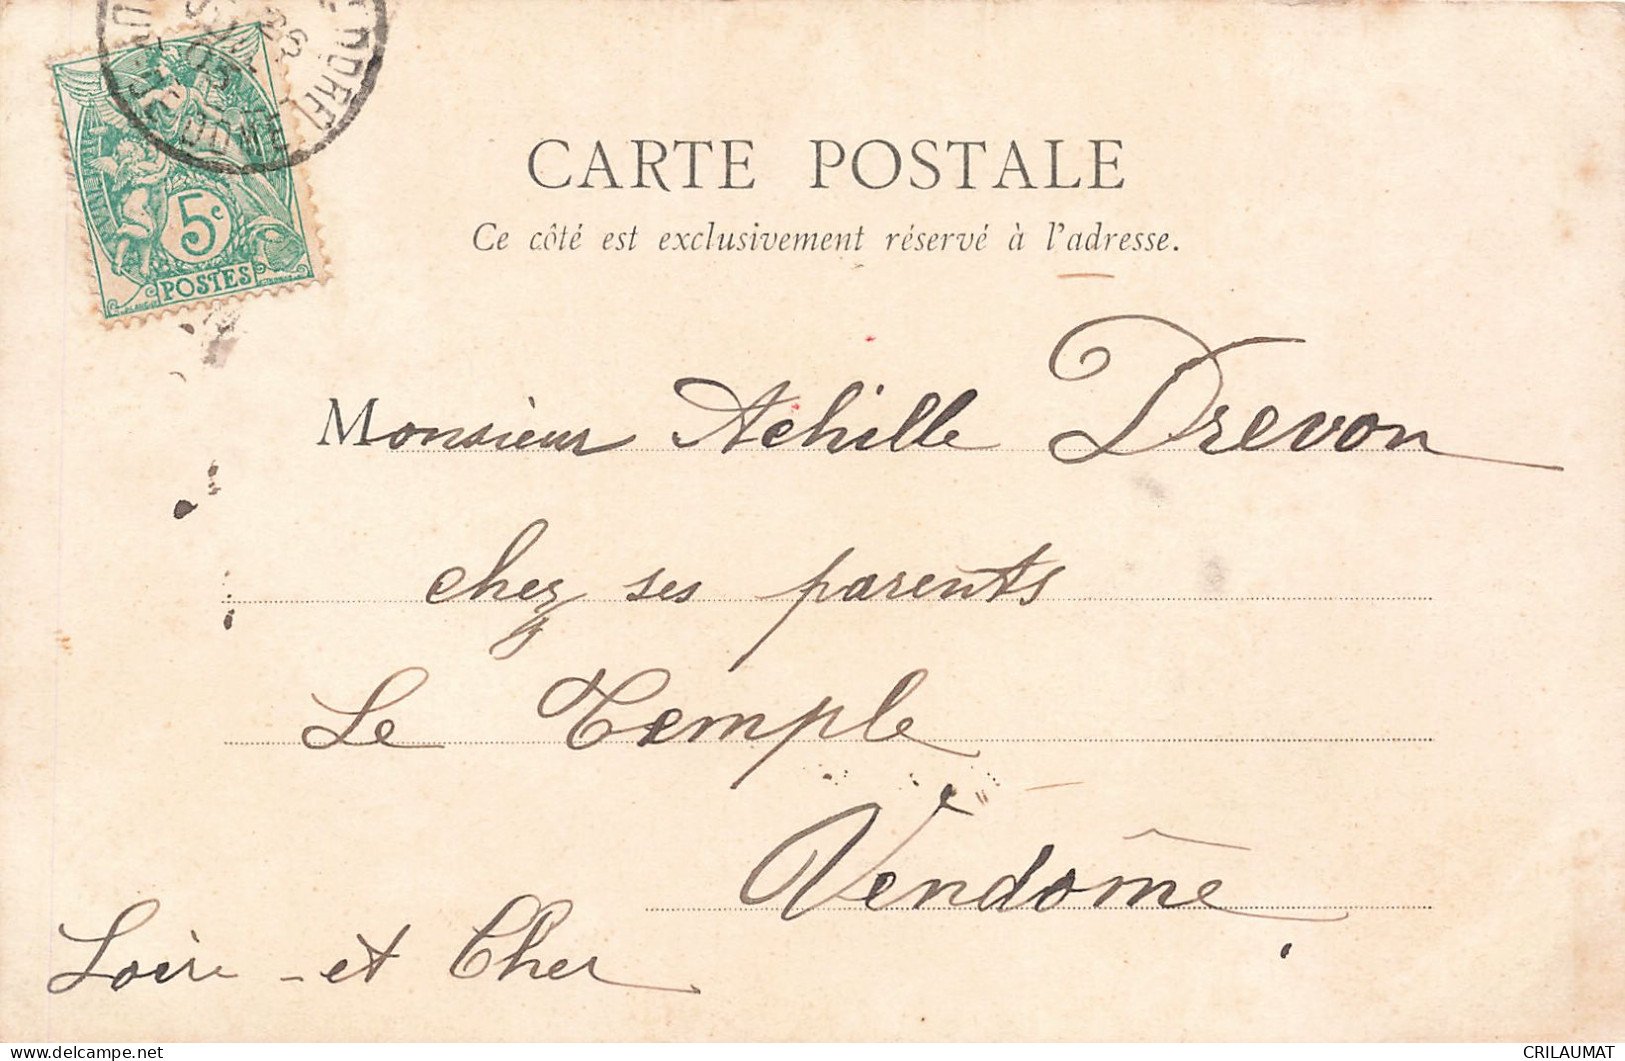 CARTE POSTALE
Ce côté est exclusivement réservé à l'adresse.
5c
POSTES
Monsieur Achille Drevon
chez ses parents
Le Temple
Vendôme
Loir - et Cher
CRILAUMAT